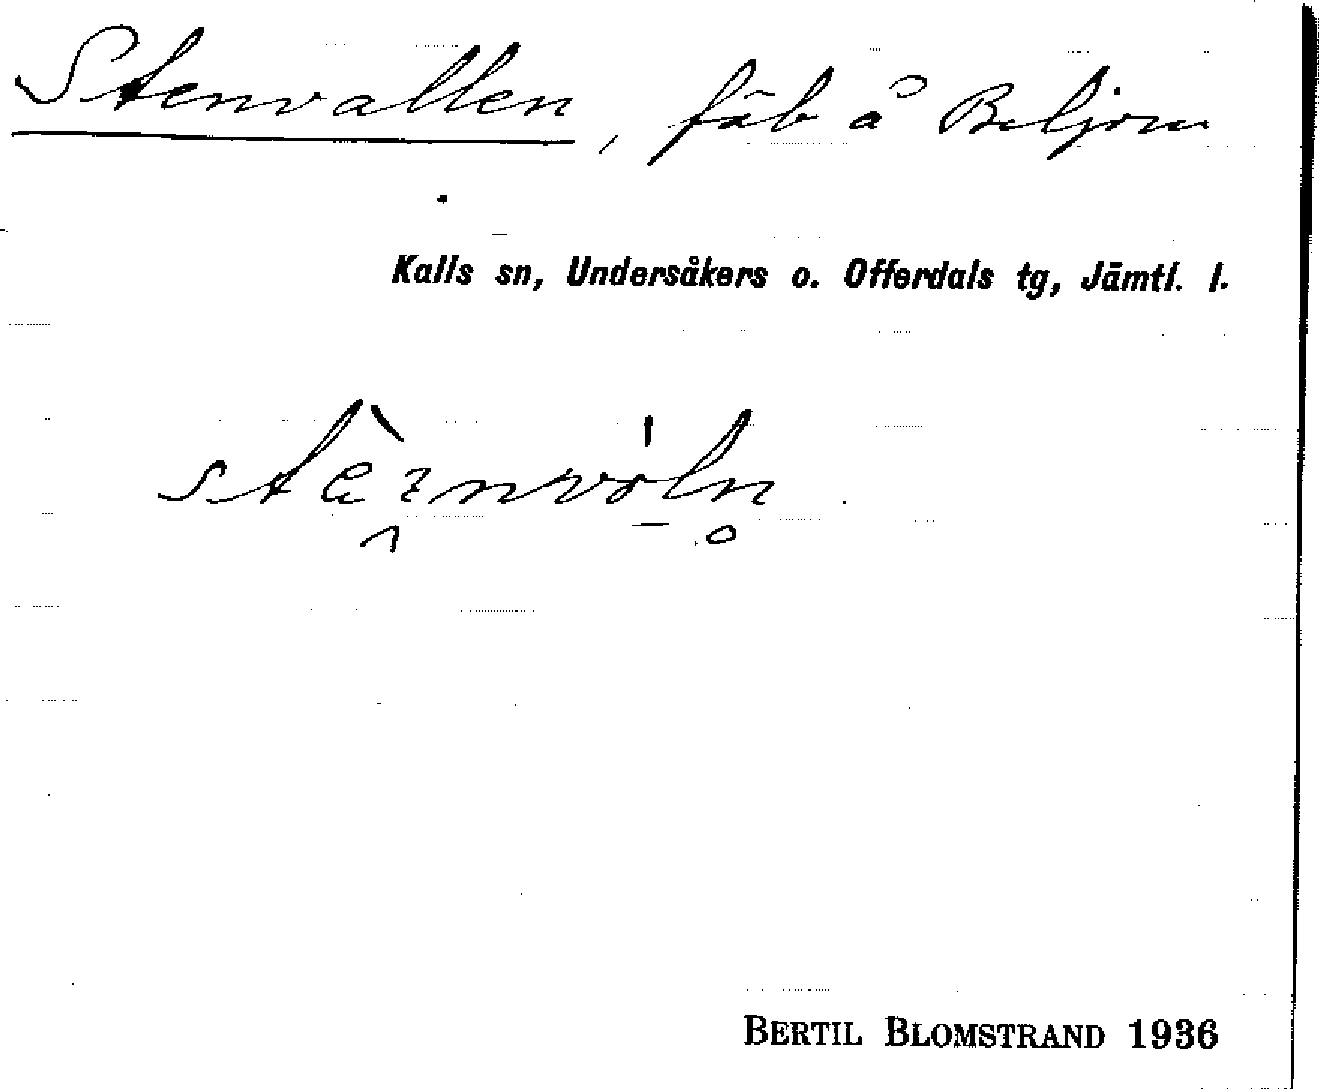 Stenvallen, fäb å Beljom
Kalls sn, Undersåkers o. Offerdals tg, Jämtl. l.
BERTIL BLOMSTRAND 1936